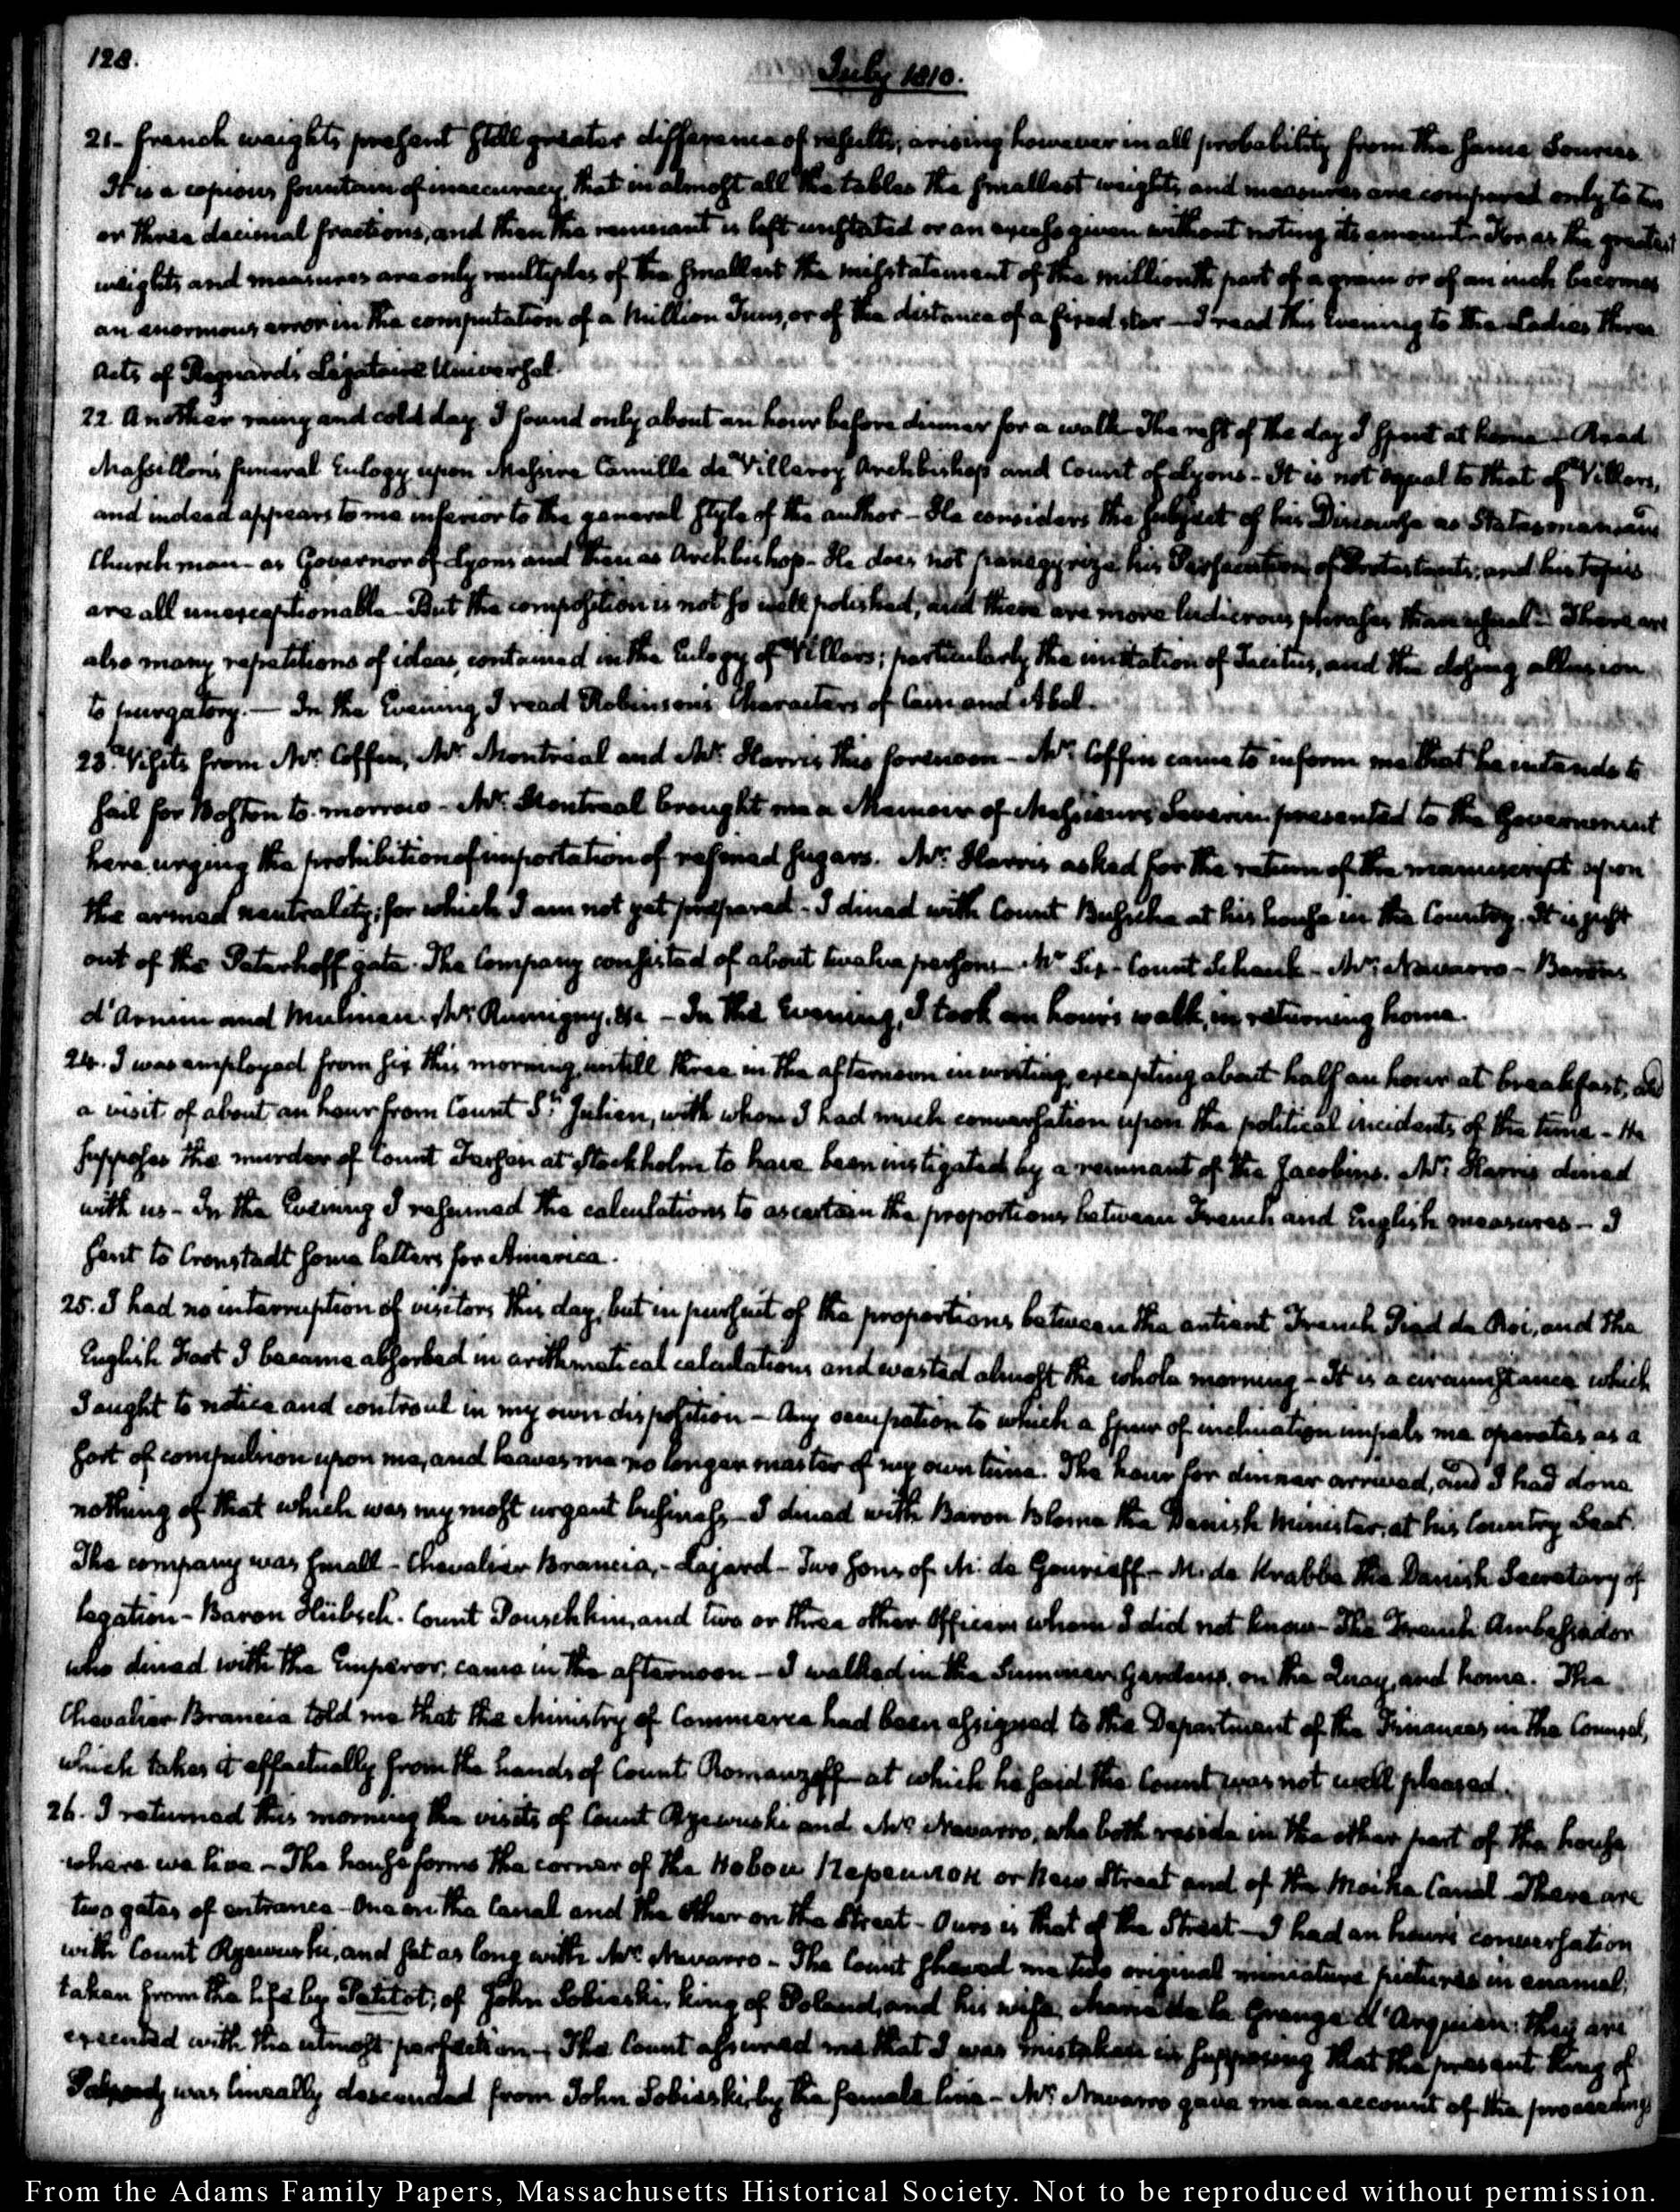 128.
July 1810.
21. French weights present still greater differences of results, arising however in all probability from the same Sources.
It is a copious fountain of inaccuracy, that in almost all the tables the smallest weights and measures are compared only to two
or three decimal fractions, and then the remnant is left unstated or an excess given without noting its amount. For as the greatest
weights and measures are only multiples of the smallest the misstatement of the millionth part of a grain or of an inch becomes
an enormous error in the computation of a million Tuns, or of the distance of a fixed star — I read this Evening to the Ladies three
Acts of Regnard's Légataire Universel.
22. Another rainy and cold day. I found only about an hour before dinner for a walk — The rest of the day I spent at home — Read
Massillon's funeral Eulogy upon Messire Camille de Villeroy Archbishop and Count of Lyons — It is not equal to that of Villars,
and indeed appears to me inferior to the general style of the author — He considers the subject of his Discourse as Statesman and
Churchman — as Governor of Lyons and then as Archbishop — He does not panegyrize his Persecution of Protestants, and his topics
are all unexceptionable — But the composition is not so well polished, and there are more ludicrous phrases than usual — There are
also many repetitions of ideas, contained in the Eulogy of Villars; particularly the imitation of Tacitus, and the closing allusion
to purgatory. — In the Evening I read Robinson's Characters of Cain and Abel.
23. Visits from Mr. Coffin, Mr. Montréal and Mr. Harris this forenoon — Mr. Coffin came to inform me that he intends to
sail for Boston to-morrow — Mr. Montreal brought me a Memoir of Messieurs Severin presented to the Government
here urging the prohibition of importation of refined sugars. Mr. Harris asked for the return of the manuscript upon
the armed neutrality; for which I am not yet prepared — I dined with Count Bussche at his house in the Country. It is just
out of the Peterhoff gate. The Company consisted of about twelve persons — Mr Six — Count Schenk — Mr. Navarro — Barons
d'Arnim and Mulinen. Mr. Rumigny, &c — In the Evening, I took an hour's walk, in returning home.
24. I was employed from six this morning, untill three in the afternoon in writing, excepting about half an hour at breakfast, and
a visit of about an hour from Count St. Julien, with whom I had much conversation upon the political incidents of the time — He
supposes the murder of Count Fersen at Stockholm to have been instigated by a remnant of the Jacobins. Mr. Harris dined
with us — In the Evening I resumed the calculations to ascertain the proportions between French and English measures — I
sent to Cronstadt some letters for America.
25. I had no interruption of visitors this day, but in pursuit of the proportions between the antient French Pied de Roi, and the
English Foot I became absorbed in arithmetical calculations and wasted almost the whole morning — It is a circumstance which
I ought to notice and controul in my own disposition — Any occupation to which a spur of inclination impels me operates as a
sort of compulsion upon me, and leaves me no longer master of my own time. The hour for dinner arrived, and I had done
nothing of that which was my most urgent business — I dined with Baron Blome the Danish Minister, at his Country Seat.
The company was small — Chevalier Brancia, — Lajard — Two sons of M. de Gourieff — M. de Krabbe the Danish Secretary of
legation — Baron Hübsch. Count Pouschkin, and two or three other Officers whom I did not know — The French Ambassador
who dined with the Emperor, came in the afternoon — I walked in the Summer Gardens, on the Quay, and home. The
Chevalier Brancia told me that the Ministry of Commerce had been assigned to the Department of the Finances in the Counsel,
which takes it effectually from the hands of Count Romanzoff — at which he said the Count was not well pleased.
26. I returned this morning the visits of Count Rzewuski and Mr. Navarro, who both reside in the other part of the house
where we live — The house forms the corner of the or New Street and of the Moika Canal — There are
two gates of entrance — One on the Canal and the other on the Street — Ours is that of the Street — I had an hour's conversation
with Count Rzewuski, and sat as long with Mr. Navarro — The Count shewed me two original miniature pictures in enamel,
taken from the life by Petitot; of John Sobieski, king of Poland, and his wife Marie de la Grange d'Arquien: they are
executed with the utmost perfection — The Count assured me that I was mistaken in supposing that the present King of
was lineally descended from John Sobieski, by the female line — Mr. Navarro gave me an account of the proceedings
From the Adams Family Papers, Massachusetts Historical Society. Not to be reproduced without permission.